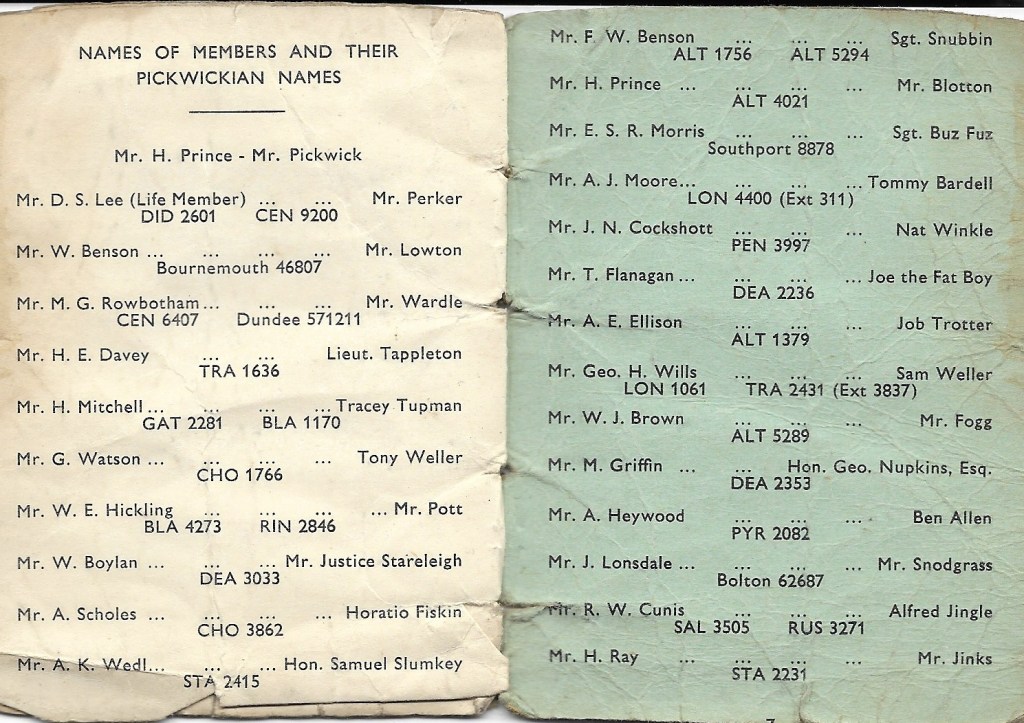 NAMES OF MEMBERS AND THEIR
PICKWICKIAN NAMES
Mr. H. Prince - Mr. Pickwick
Mr. D. S. Lee (Life Member) ... ... Mr. Perker
DID 2601 CEN 9200
Mr. W. Benson ... ... ... ... Mr. Lowton
Bournemouth 46807
Mr. M. G. Rowbotham ... ... ... Mr. Wardle
CEN 6407 Dundee 571211
Mr. H. E. Davey ... ... Lieut. Tappleton
TRA 1636
Mr. H. Mitchell ... ... ... ... Tracey Tupman
GAT 2281 BLA 1170
Mr. G. Watson ... ... ... ... Tony Weller
CHO 1766
Mr. W. E. Hickling ... ... ... Mr. Pott
BLA 4273 RIN 2846
Mr. W. Boylan ... ... ... Mr. Justice Stareleigh
DEA 3033
Mr. A. Scholes ... ... ... Horatio Fiskin
CHO 3862
Mr. A. K. Wedl... ... ... Hon. Samuel Slumkey
STA 2415
Mr. F. W. Benson ... ... ... Sgt. Snubbin
ALT 1756 ALT 5294
Mr. H. Prince ... ... ... ... Mr. Blotton
ALT 4021
Mr. E. S. R. Morris ... ... ... Sgt. Buz Fuz
Southport 8878
Mr. A. J. Moore... ... ... ... Tommy Bardell
LON 4400 (Ext 311)
Mr. J. N. Cockshott ... ... ... Nat Winkle
PEN 3997
Mr. T. Flanagan ... ... ... ... Joe the Fat Boy
DEA 2236
Mr. A. E. Ellison ... ... ... Job Trotter
ALT 1379
Mr. Geo. H. Wills ... ... ... Sam Weller
LON 1061 TRA 2431 (Ext 3837)
Mr. W. J. Brown ... ... ... Mr. Fogg
ALT 5289
Mr. M. Griffin ... ... Hon. Geo. Nupkins, Esq.
DEA 2353
Mr. A. Heywood ... ... ... Ben Allen
PYR 2082
Mr. J. Lonsdale ... ... ... ... Mr. Snodgrass
Bolton 62687
Mr. R. W. Cunis ... ... ... Alfred Jingle
SAL 3505 RUS 3271
Mr. H. Ray ... ... ... ... Mr. Jinks
STA 2231